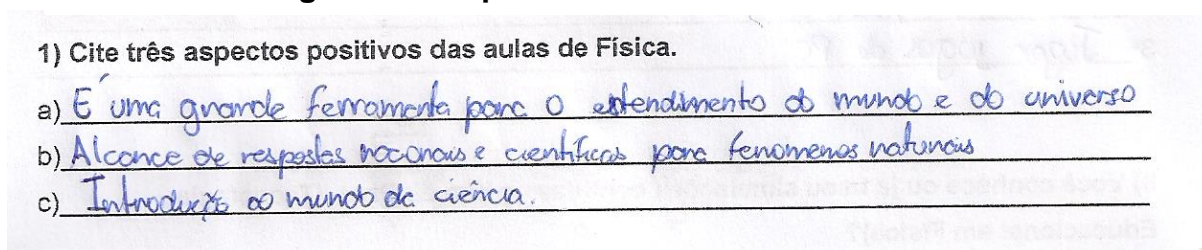 1) Cite três aspectos positivos das aulas de Física.
a) É uma grande ferramenta para o entendimento do mundo e do universo
b) Alcance de respostas racionais e científicas para fenomenos naturais
c) Introdução ao mundo da ciência.